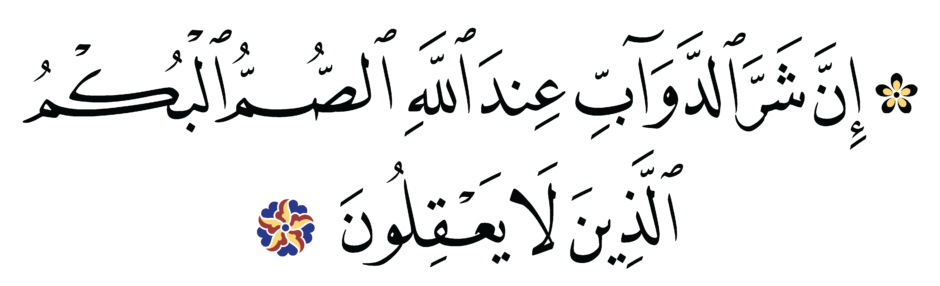 إِنَّ شَرَّ ٱلدَّوَآبِّ عِندَ ٱللَّهِ ٱلصُّمُّ ٱلْبُكْمُ
ٱلَّذِينَ لَا يَعْقِلُونَ